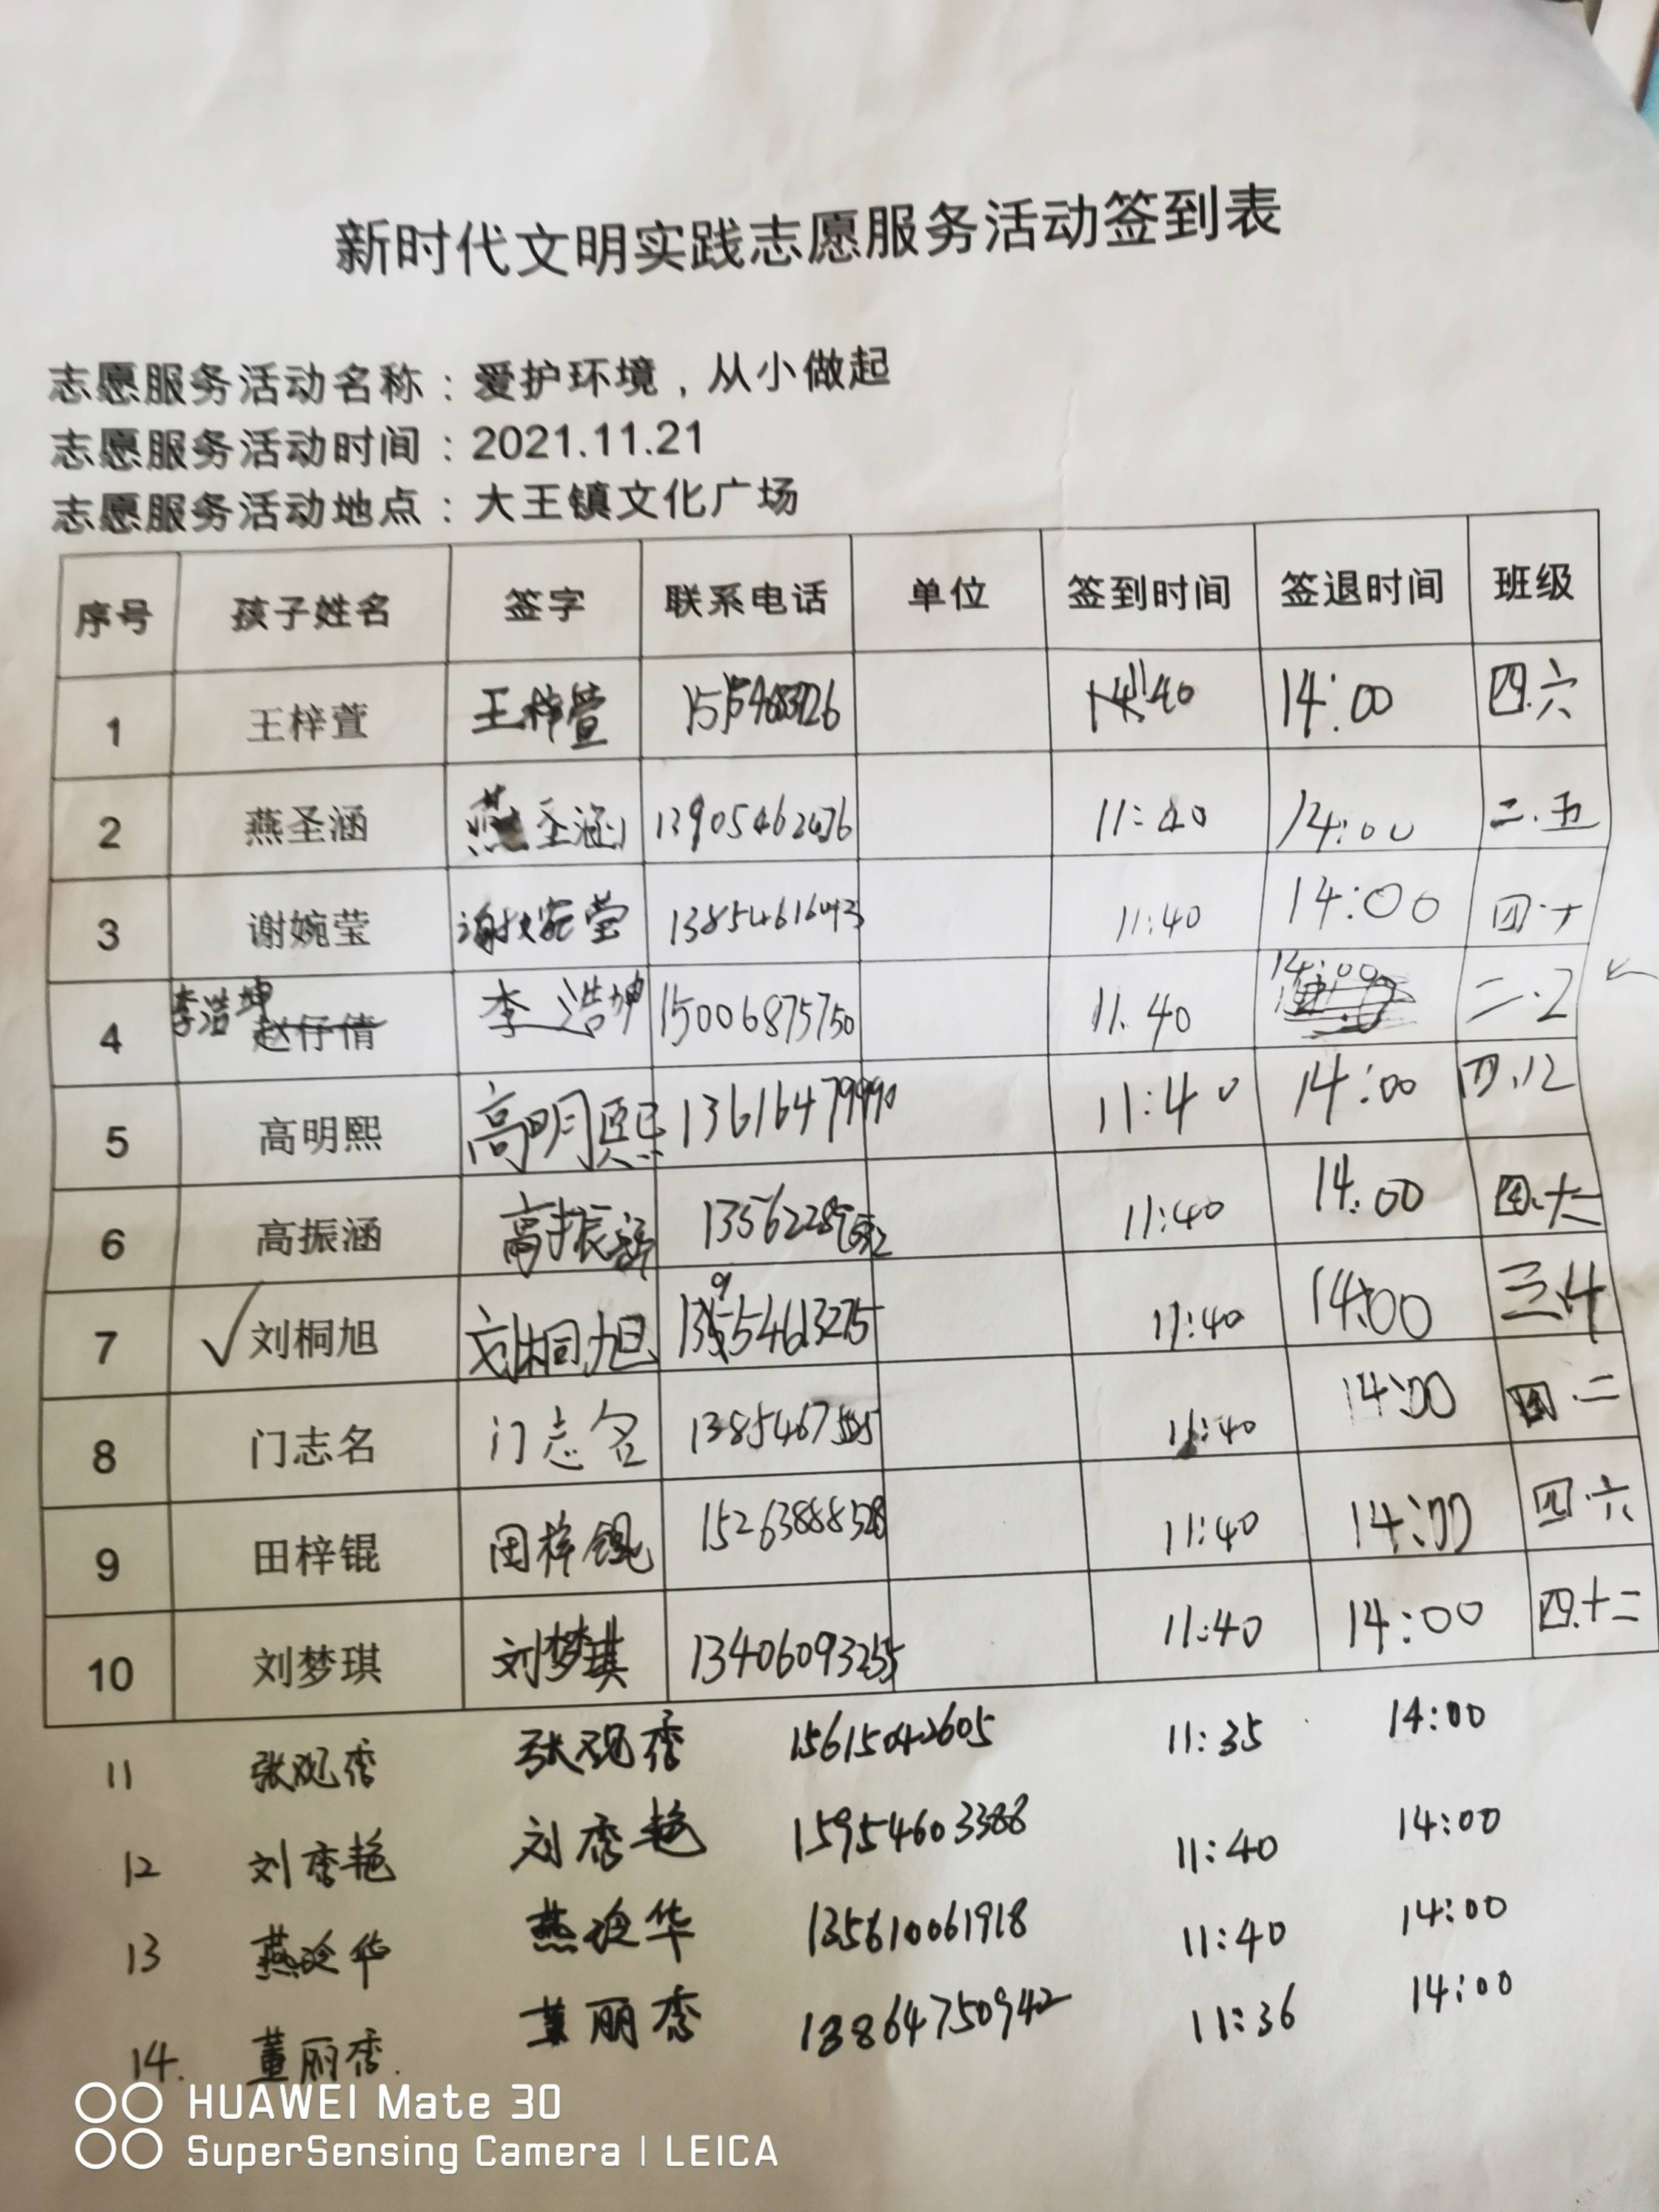 新时代文明实践志愿服务活动签到表
志愿服务活动名称：爱护环境，从小做起
志愿服务活动时间：2021.11.21
志愿服务活动地点：大王镇文化广场
序号 孩子姓名 签字 联系电话 单位 签到时间 签退时间 班级
1 王梓萱 王梓萱 11:40 14:00 四.六
2 燕圣涵 燕圣涵 11:40 14:00 二.五
3 谢婉莹 谢婉莹 11:40 14:00 四.十
4 李浩坤 赵仔倩 李浩坤 15006875750 11.40 14:00 二.2
5 高明熙 高明熙 11:40 14:00 四.12
6 高振涵 高振涵 11:40 14.00
7 刘桐旭 刘桐旭 11:40 14:00 三.4
8 门志名 门志名 11:40 14:00 四.二
9 田梓锟 田梓锟 15263888528 11:40 14:00 四.六
10 刘梦琪 刘梦琪 13406093255 11:40 14:00 四.十二
11 张观香 张观香 15615042605 11:35 14:00
12 刘秀艳 刘秀艳 15954603388 11:40 14:00
13 11:40 14:00
14. 董丽香. 董丽香 13864750942 11:36 14:00
HUAWEI Mate 30
SuperSensing Camera | LEICA